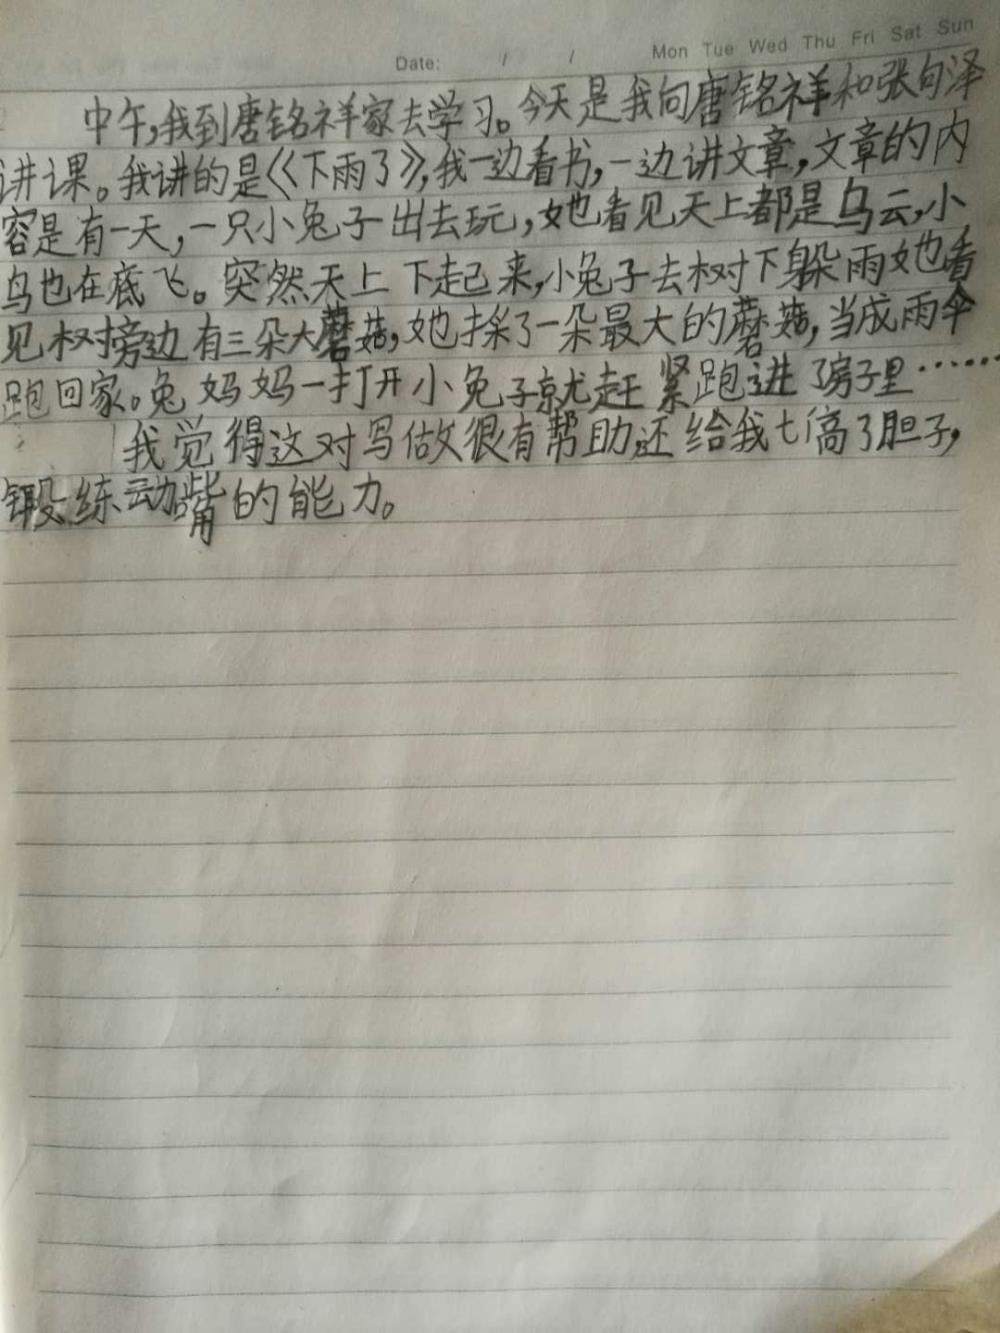 Date: / / Mon Tue Wed Thu Fri Sat Sun
中午,我到唐铭祥家去学习。今天是我向唐铭祥和张句泽
讲课。我讲的是《下雨了》,我一边看书,一边讲文章,文章的内
容是有一天,一只小兔子出去玩,她看见天上都是乌云,小
鸟也在底飞。突然天上下起来,小兔子去树下躲雨她看
见树旁边有三朵大蘑菇,她采了一朵最大的蘑菇,当成雨伞
跑回家。兔妈妈一打开小兔子就赶紧跑进了房子里……
我觉得这对写做很有帮助,还给我高了胆子,
锻练动嘴的能力。